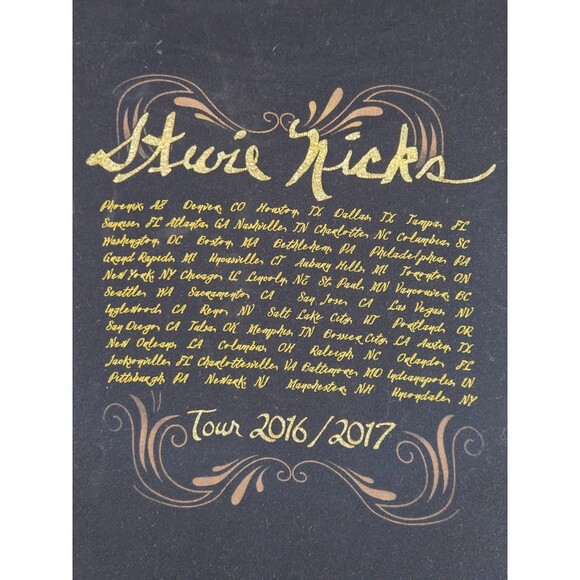 Stevie Nicks
Phoenix, AZ Denver, CO Houston, TX Dallas, TX Tampa, FL
Sunrise, FL Atlanta, GA Nashville, TN Charlotte, NC Columbia, SC
Washington, DC Boston, MA Bethlehem, PA Philadelphia, PA
Grand Rapids, MI Uncasville, CT Auburn Hills, MI Toronto, ON
New York, NY Chicago, IL Lincoln, NE St. Paul, MN Vancouver, BC
Seattle, WA Sacramento, CA San Jose, CA Las Vegas, NV
Inglewood, CA Reno, NV Salt Lake City, UT Portland, OR
San Diego, CA Tulsa, OK Memphis, TN Bossier City, LA Austin, TX
New Orleans, LA Columbus, OH Raleigh, NC Orlando, FL
Jacksonville, FL Charlottesville, VA Baltimore, MD Indianapolis, IN
Pittsburgh, PA Newark, NJ Manchester, NH Uniondale, NY
Tour 2016/2017